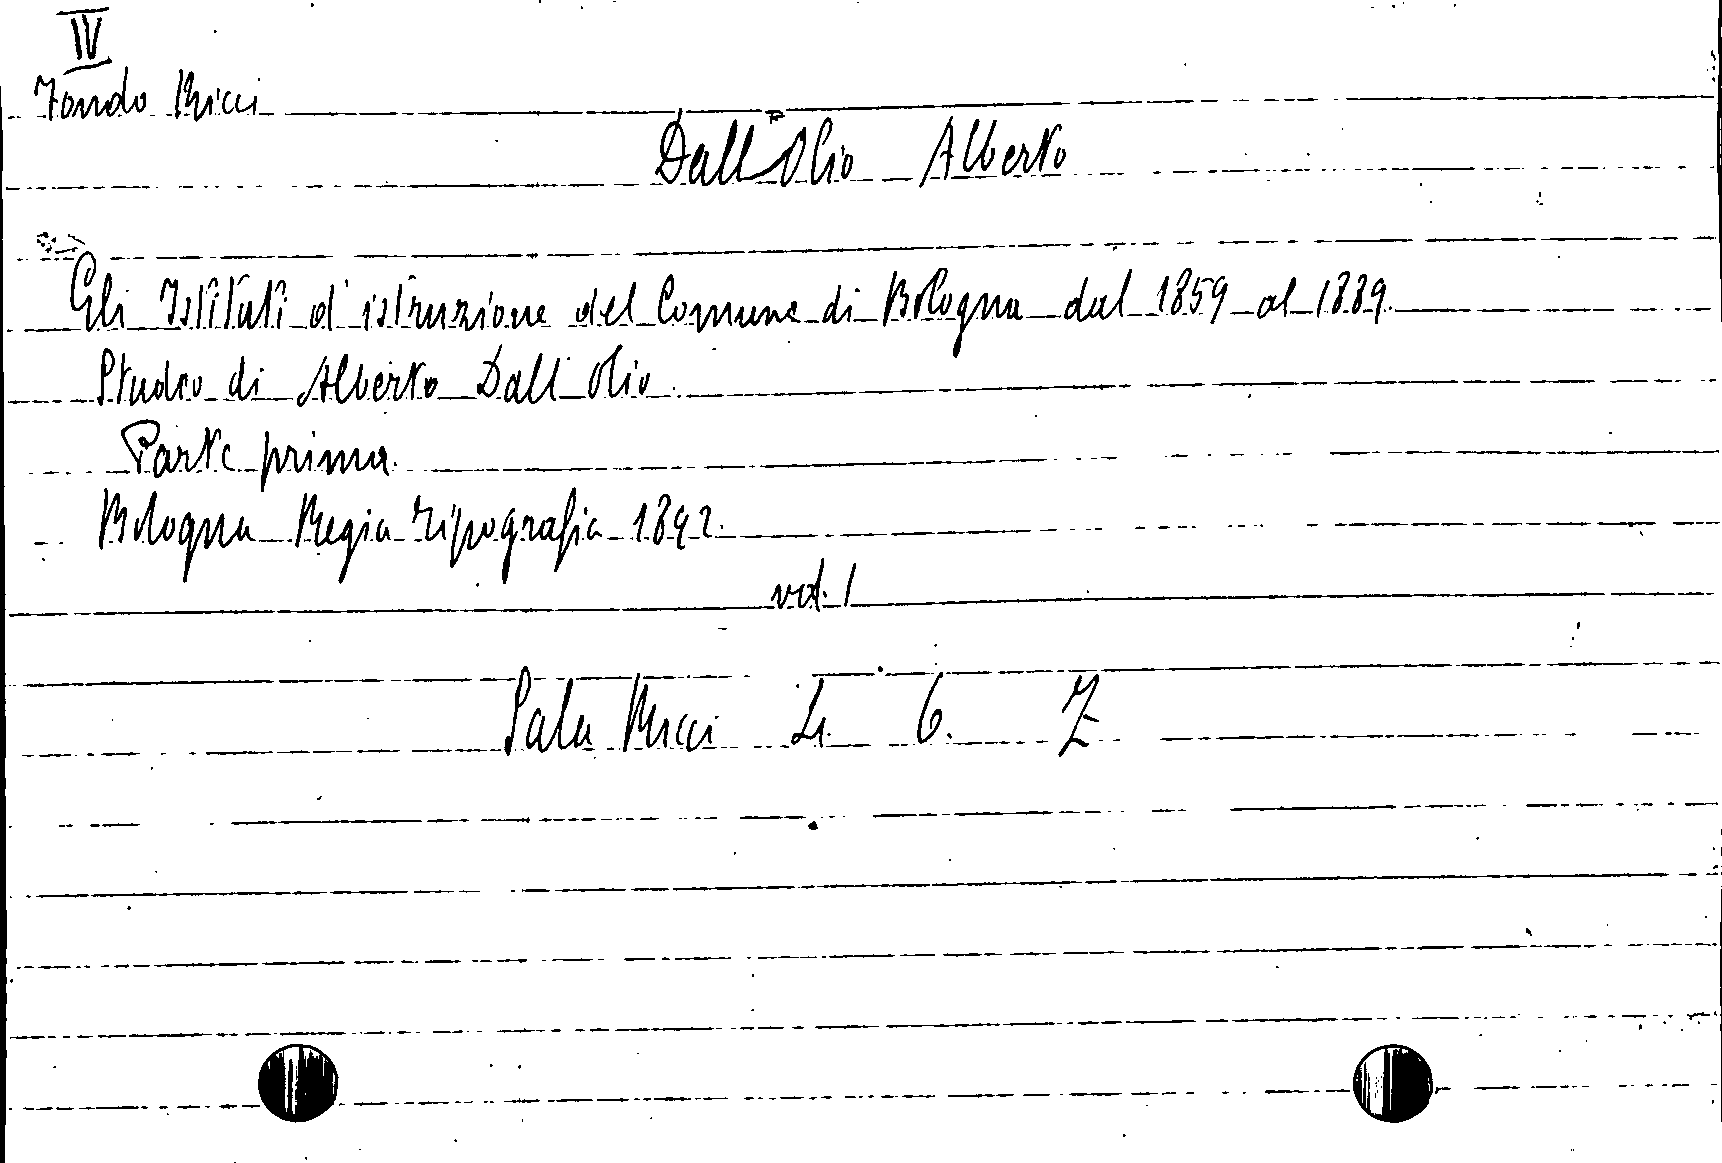 IV
Fondo Ricci
Dall'Olio Alberto
Gli Istituti d'istruzione del Comune di Bologna dal 1859 al 1889.
Studio di Alberto Dall'Olio.
Parte prima.
Bologna Regia Tipografia 1892.
vol. 1
Sala Ricci L. 6. 7